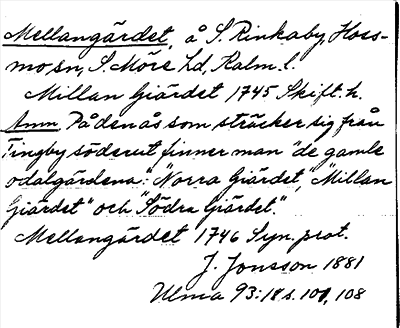 Mellangärdet, å S. Rinkaby, Hoss-
mo sn, S. Möre hd, Kalm. l.
Millan Giärdet 1745 Skift. h.
Anm. På den ås som sträcker sig från
Tingby söderut finner man "de gamle
odalgärdena": "Norra Giärdet", "Millan
Giärdet" och "Södra Giärdet."
Mellangärdet 1746 Syn. prot.
J. Jonsson 1881
Ulma 93:18 s. 101, 108